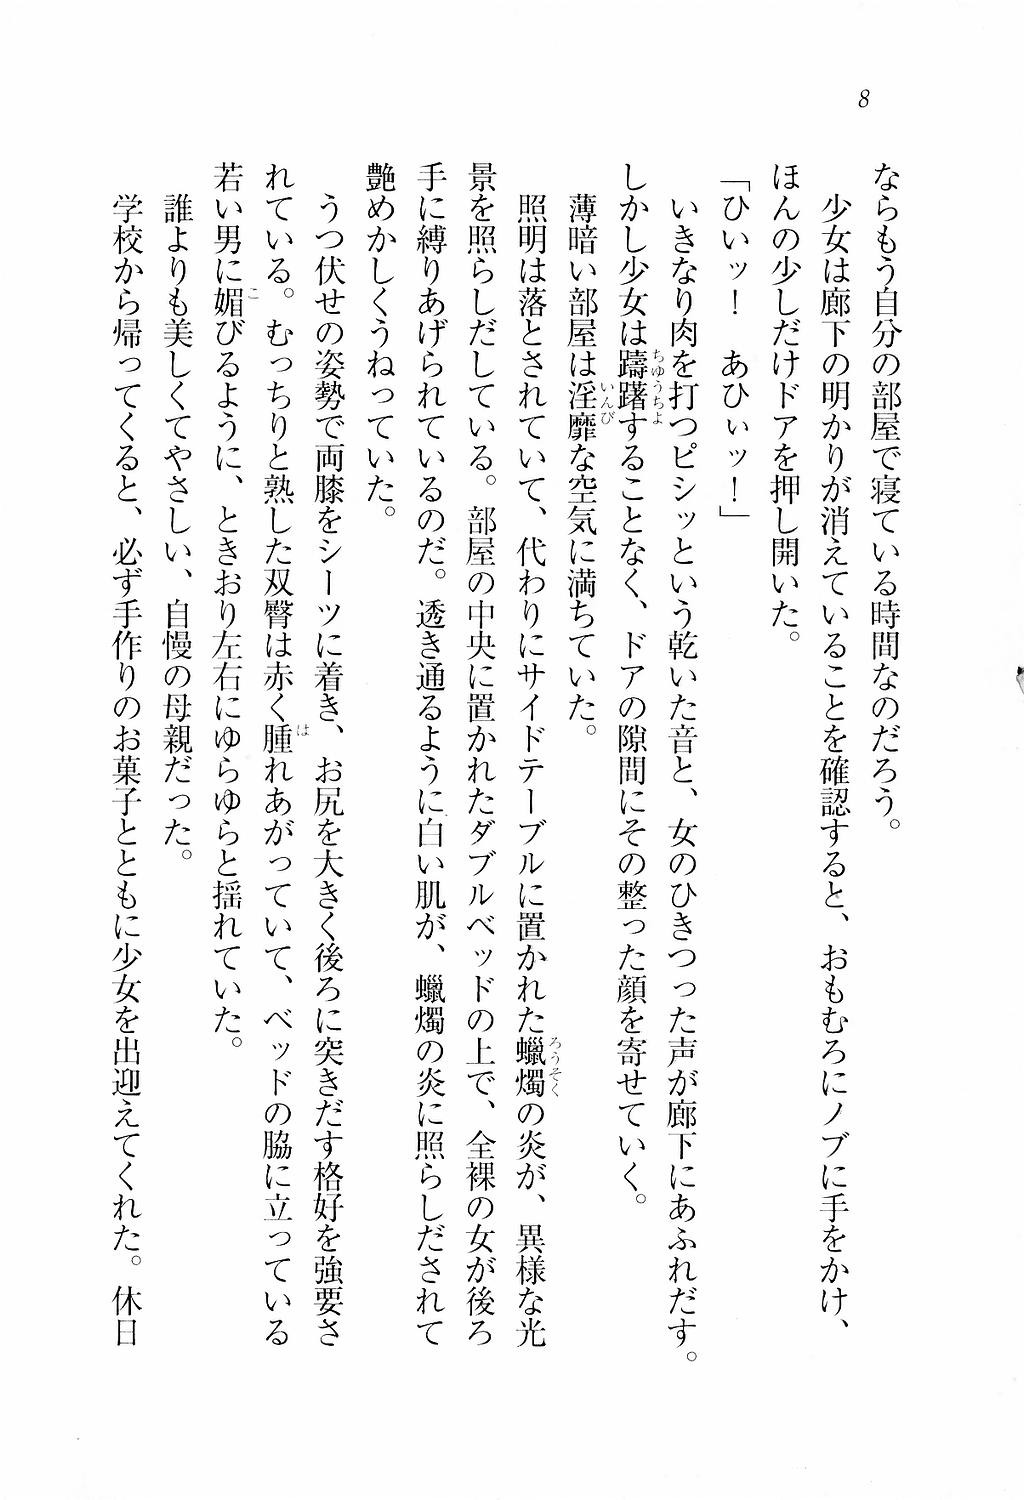 8
ならもう自分の部屋で寝ている時間なのだろう。
少女は廊下の明かりが消えていることを確認すると、おもむろにノブに手をかけ、
ほんの少しだけドアを押し開いた。
「ひいッ！　あひぃッ！」
いきなり肉を打つピシッという乾いた音と、女のひきつった声が廊下にあふれだす。
しかし少女は躊躇することなく、ドアの隙間にその整った顔を寄せていく。
薄暗い部屋は淫靡な空気に満ちていた。
照明は落とされていて、代わりにサイドテーブルに置かれた蠟燭の炎が、異様な光
景を照らしだしている。部屋の中央に置かれたダブルベッドの上で、全裸の女が後ろ
手に縛りあげられているのだ。透き通るように白い肌が、蠟燭の炎に照らしだされて
艶めかしくうねっていた。
うつ伏せの姿勢で両膝をシーツに着き、お尻を大きく後ろに突きだす格好を強要さ
れている。むっちりと熟した双臀は赤く腫れあがっていて、ベッドの脇に立っている
若い男に媚びるように、ときおり左右にゆらゆらと揺れていた。
誰よりも美しくてやさしい、自慢の母親だった。
学校から帰ってくると、必ず手作りのお菓子とともに少女を出迎えてくれた。休日